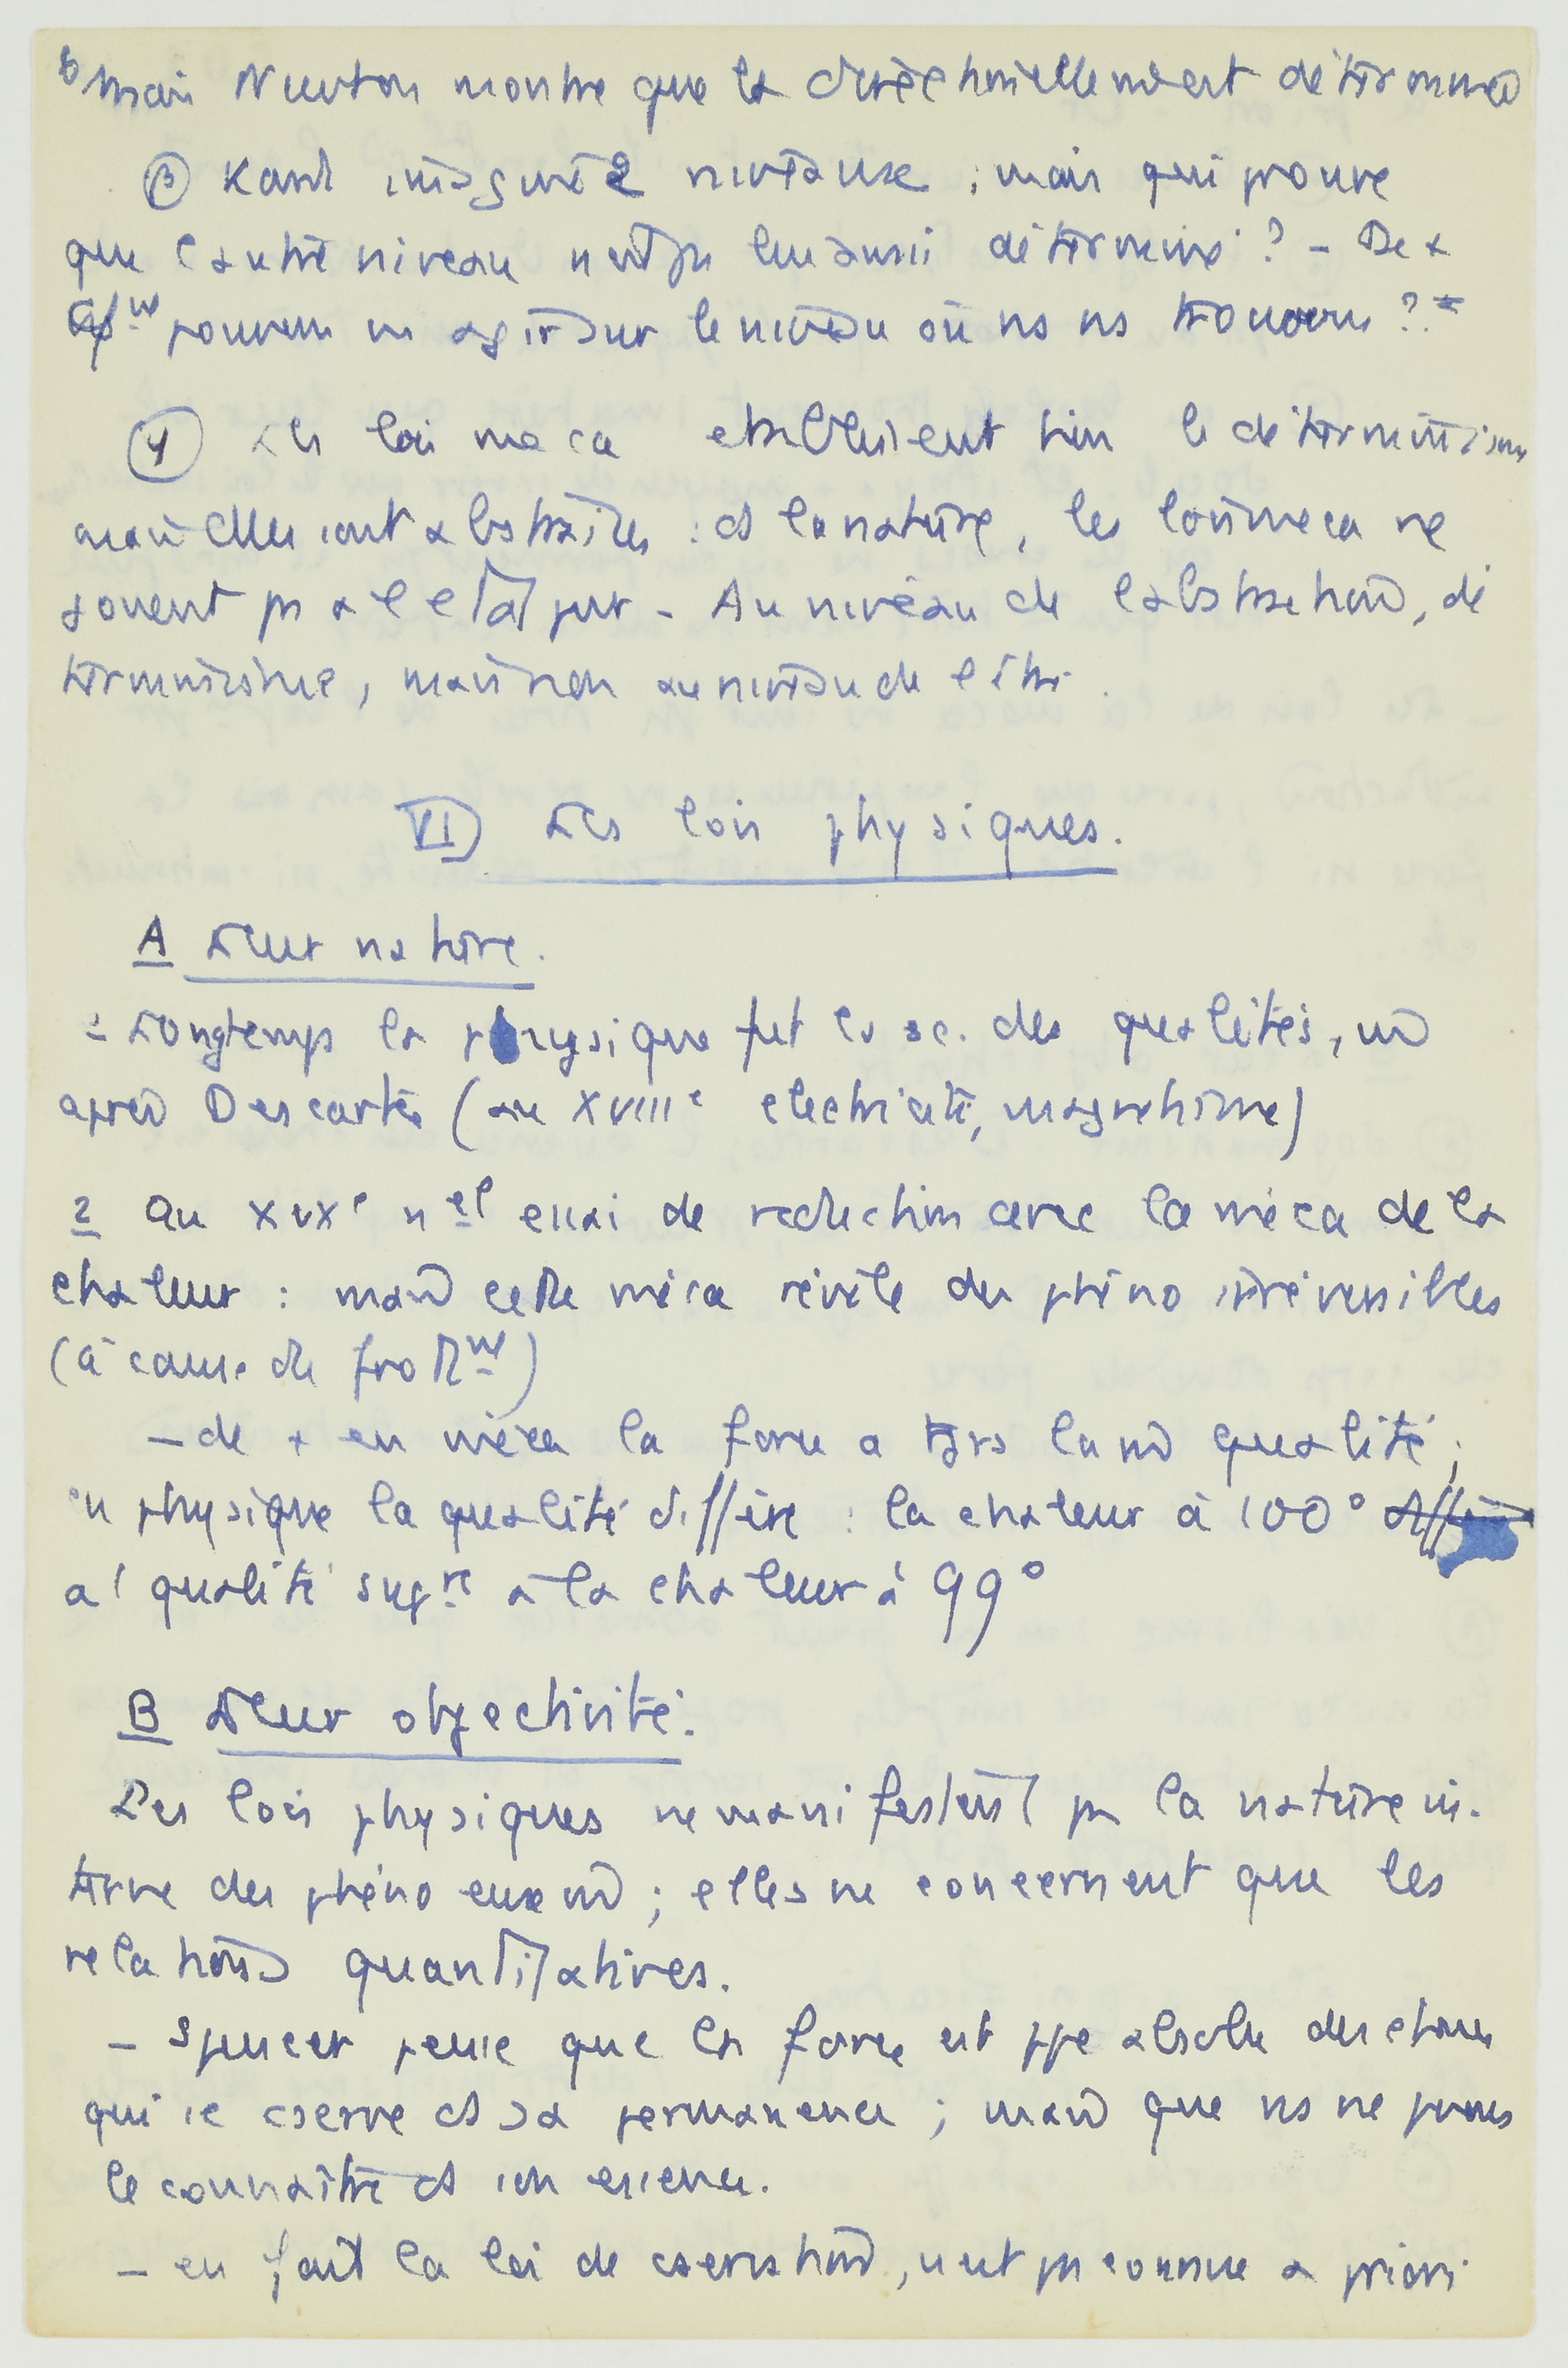 mais Newton montre que la direction elle même est déterminée
β Kant imagine 2 niveaux ; mais qui prouve
que l'autre niveau n'est pas lui aussi déterminé ? – De +
pouvons ns agir sur le niveau où ns ns trouvons ?
γ Les lois méca établissent bien le déterminisme
mais elles sont abstraites : ds la nature, les lois méca ne
jouent pas à l'état pur – Au niveau de l'abstraction, dé
terminisme, mais non au niveau de l'être.
VI) Les lois physiques.
A Leur nature.
1 Longtemps la physique fut la sc. des qualités, m̂
après Descartes (au XVIIIe électricité, magnétisme)
2 Au XIXe nel essai de réduction avec la méca de la
chaleur : mais cette méca révèle des phéno irréversibles
(à cause du frottmt)
– de + en méca la force a tjrs la m̂ qualité ;
en physique la qualité diffère : la chaleur à 100°
a 1 qualité supre à la chaleur à 99°
B Leur objectivité.
Les lois physiques ne manifestent pas la nature in-
terne des phéno eux m̂ ; elles ne concernent que les
relations quantitatives.
– Spencer pense que la force est ppe absolu des choses
qui se cserve ds sa permanence ; mais que ns ne pouvons
le connaître ds son essence.
– en fait la loi de cservation, n'est pas connue a priori